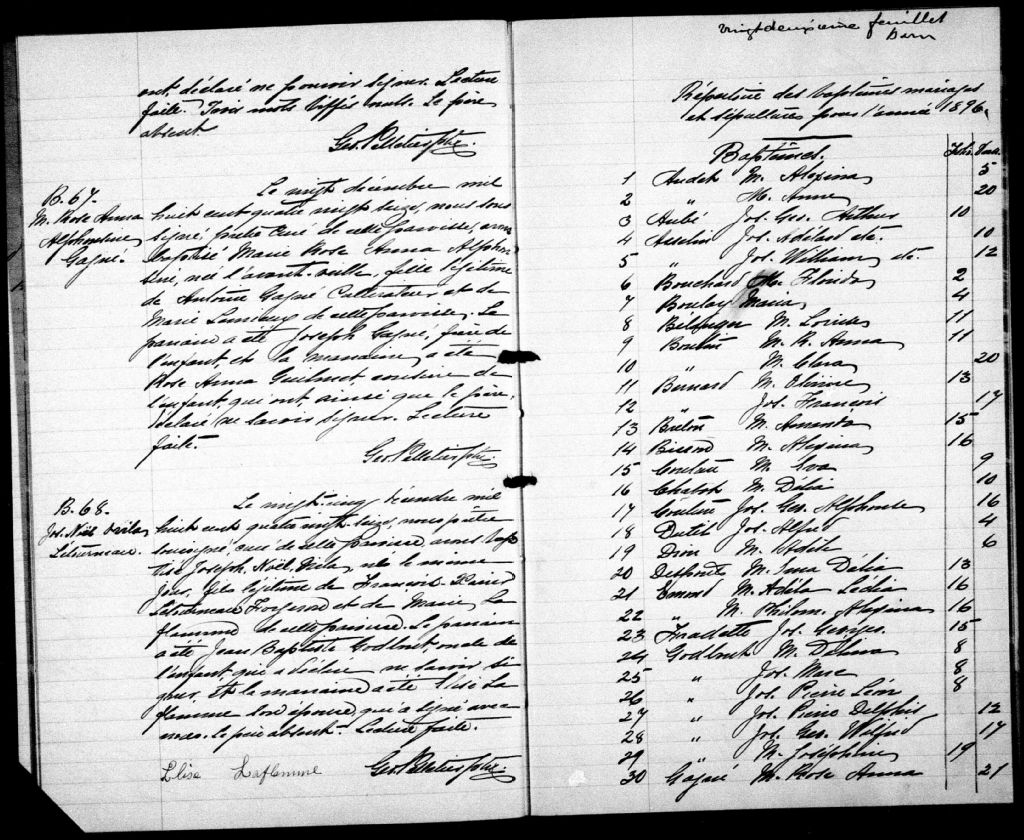 ont déclaré ne pouvoir signer. Lecture
faite. Trois mots biffés nuls. Le père
absent.
Geo. Pelletier Ptre.
B. 67.
M. Rose Anna
Alphonsine
Gagné.
Le vingt décembre mil
huit cent quatre vingt seize, nous sous
signé prêtre curé de cette paroisse, avons
baptisé Marie Rose Anna Alphon
sine, née l'avant-veille, fille légitime
de Antoine Gagné Cultivateur et de
Marie de cette paroisse. Le
parrain a été Joseph Gagné, frère de
l'enfant, et la marraine a été
Rose Anna Guilmet, cousine de
l'enfant, qui ont, ainsi que le père,
déclaré ne savoir signer. Lecture
faite.
Geo. Pelletier Ptre.
B. 68.
Jos. Noël Ovila
Letourneau.
Le vingt-cinq décembre mil
huit cent quatre vingt seize, nous prêtre
soussigné curé de cette paroisse avons bap
tisé Joseph, Noël, Ovila, né le même
jour, fils légitime de François
Letourneau Forgeron et de Marie La
flamme de cette paroisse. Le parrain
a été Jean Baptiste Godbout, oncle de
l'enfant, qui a déclaré ne savoir si
gner. Et la marraine a été Elise La
flamme son épouse, qui a signé avec
nous. Le père absent. Lecture faite.
Elise Laflamme Geo. Pelletier Ptre.
vingt deuxième feuillet
Répertoire des baptêmes mariages
et sépultures pour l'année 1896.
Baptêmes.
1 Audet M. Alexina 5
2 " M. Anna 20
3 Aubé Jos. Geo. Arthur 10
4 Asselin Jos. Adélard etc. 10
5 " Jos. William etc. 12
6 Bouchard M. Florida 2
7 Boulay Maria 4
8 Bélanger M. Louise 11
9 Boutin M. R. Anna 11
10 " M. Clara 20
11 Bernard M. 13
12 " Jos. François 17
13 Breton M. Amanda 15
14 M. Alexina 16
15 Couture M. Eva 9
16 Chabot M. Délia 10
17 Couture Jos. Geo. Alphonse 16
18 Dutil Jos. Alfred 4
19 Dion M. Adèle 6
20 M. Délia 13
21 Emond M. Adéla Lédia 16
22 " M. Philom. Alexina 16
23 Fradette Jos. Georges. 15
24 Godbout M. Délima 8
25 " Jos. Marc 8
26 " Jos. Pierre Léon 8
27 " Jos. Pierre Delphis 12
28 " Jos. Geo. Wilfrid 17
29 " M. Joséphine 19
30 Gagné M. Rose Anna 21